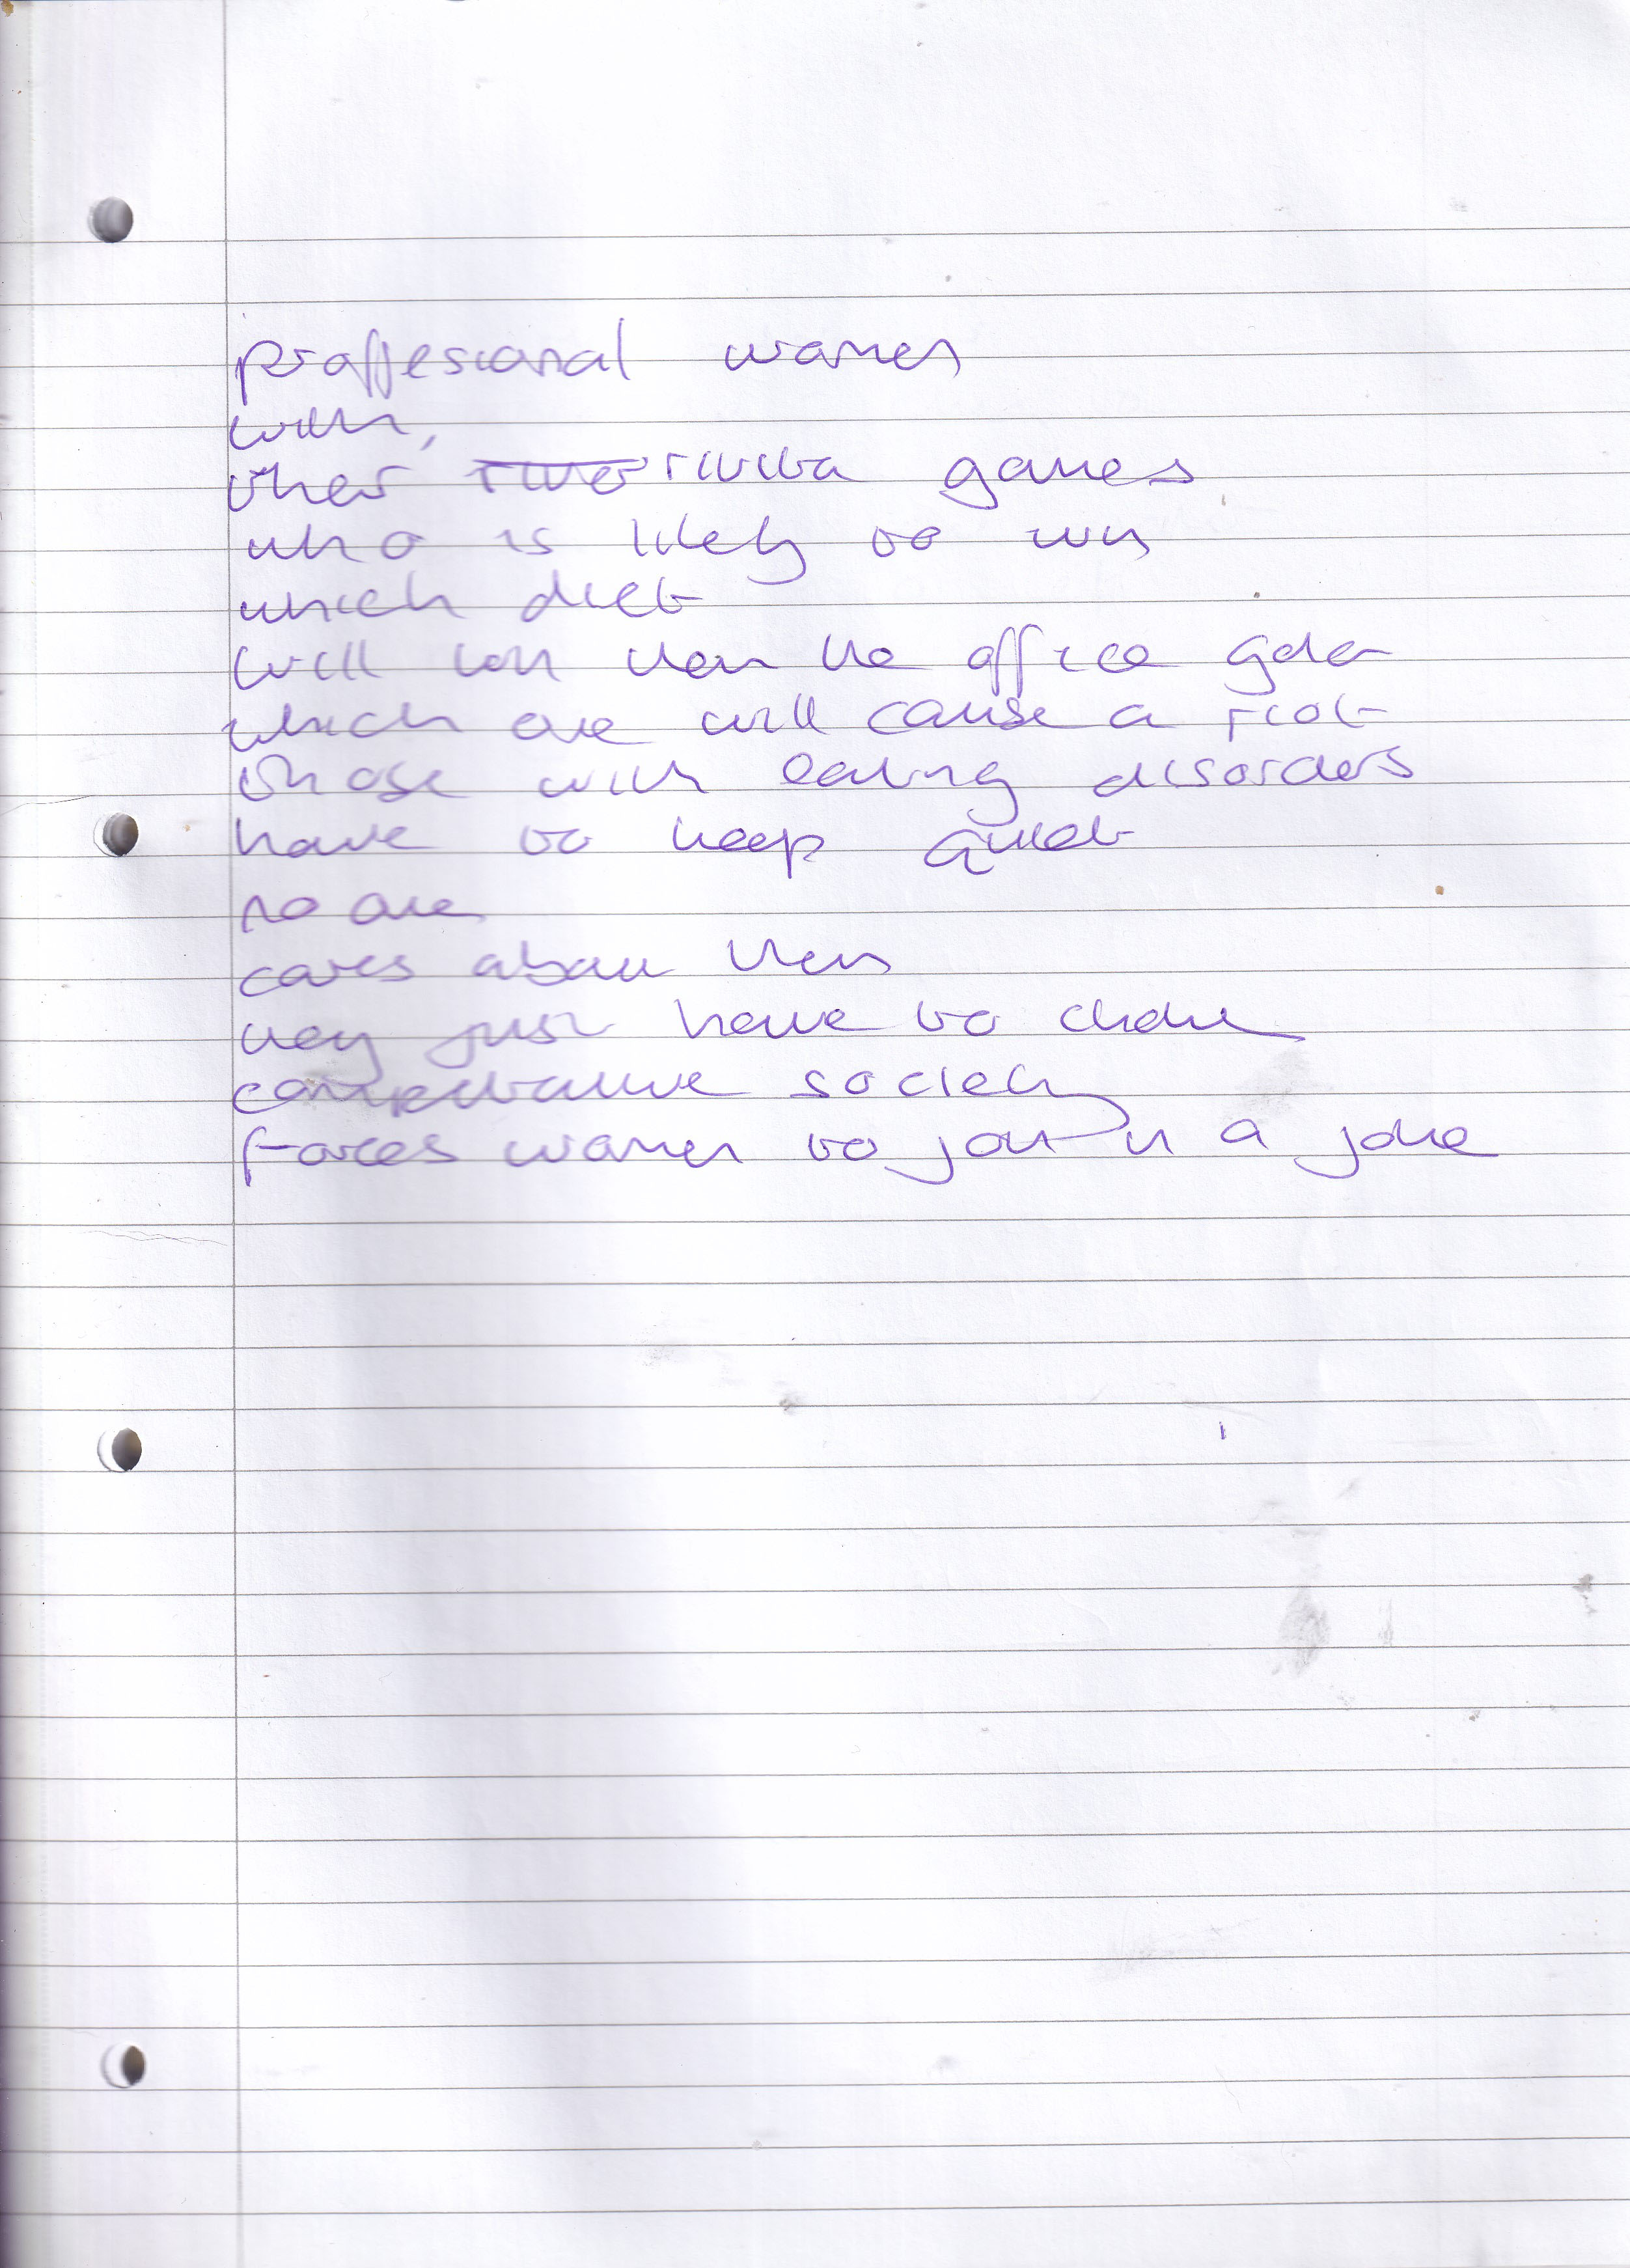 proffesional women
with,
their trivia games
who is likely to win
which diet
will win them the office gold
which one will cause a riot
those with eating disorders
have to keep quiet
no one
cares about them
they just have to choke
competative society
forces women to join in a joke